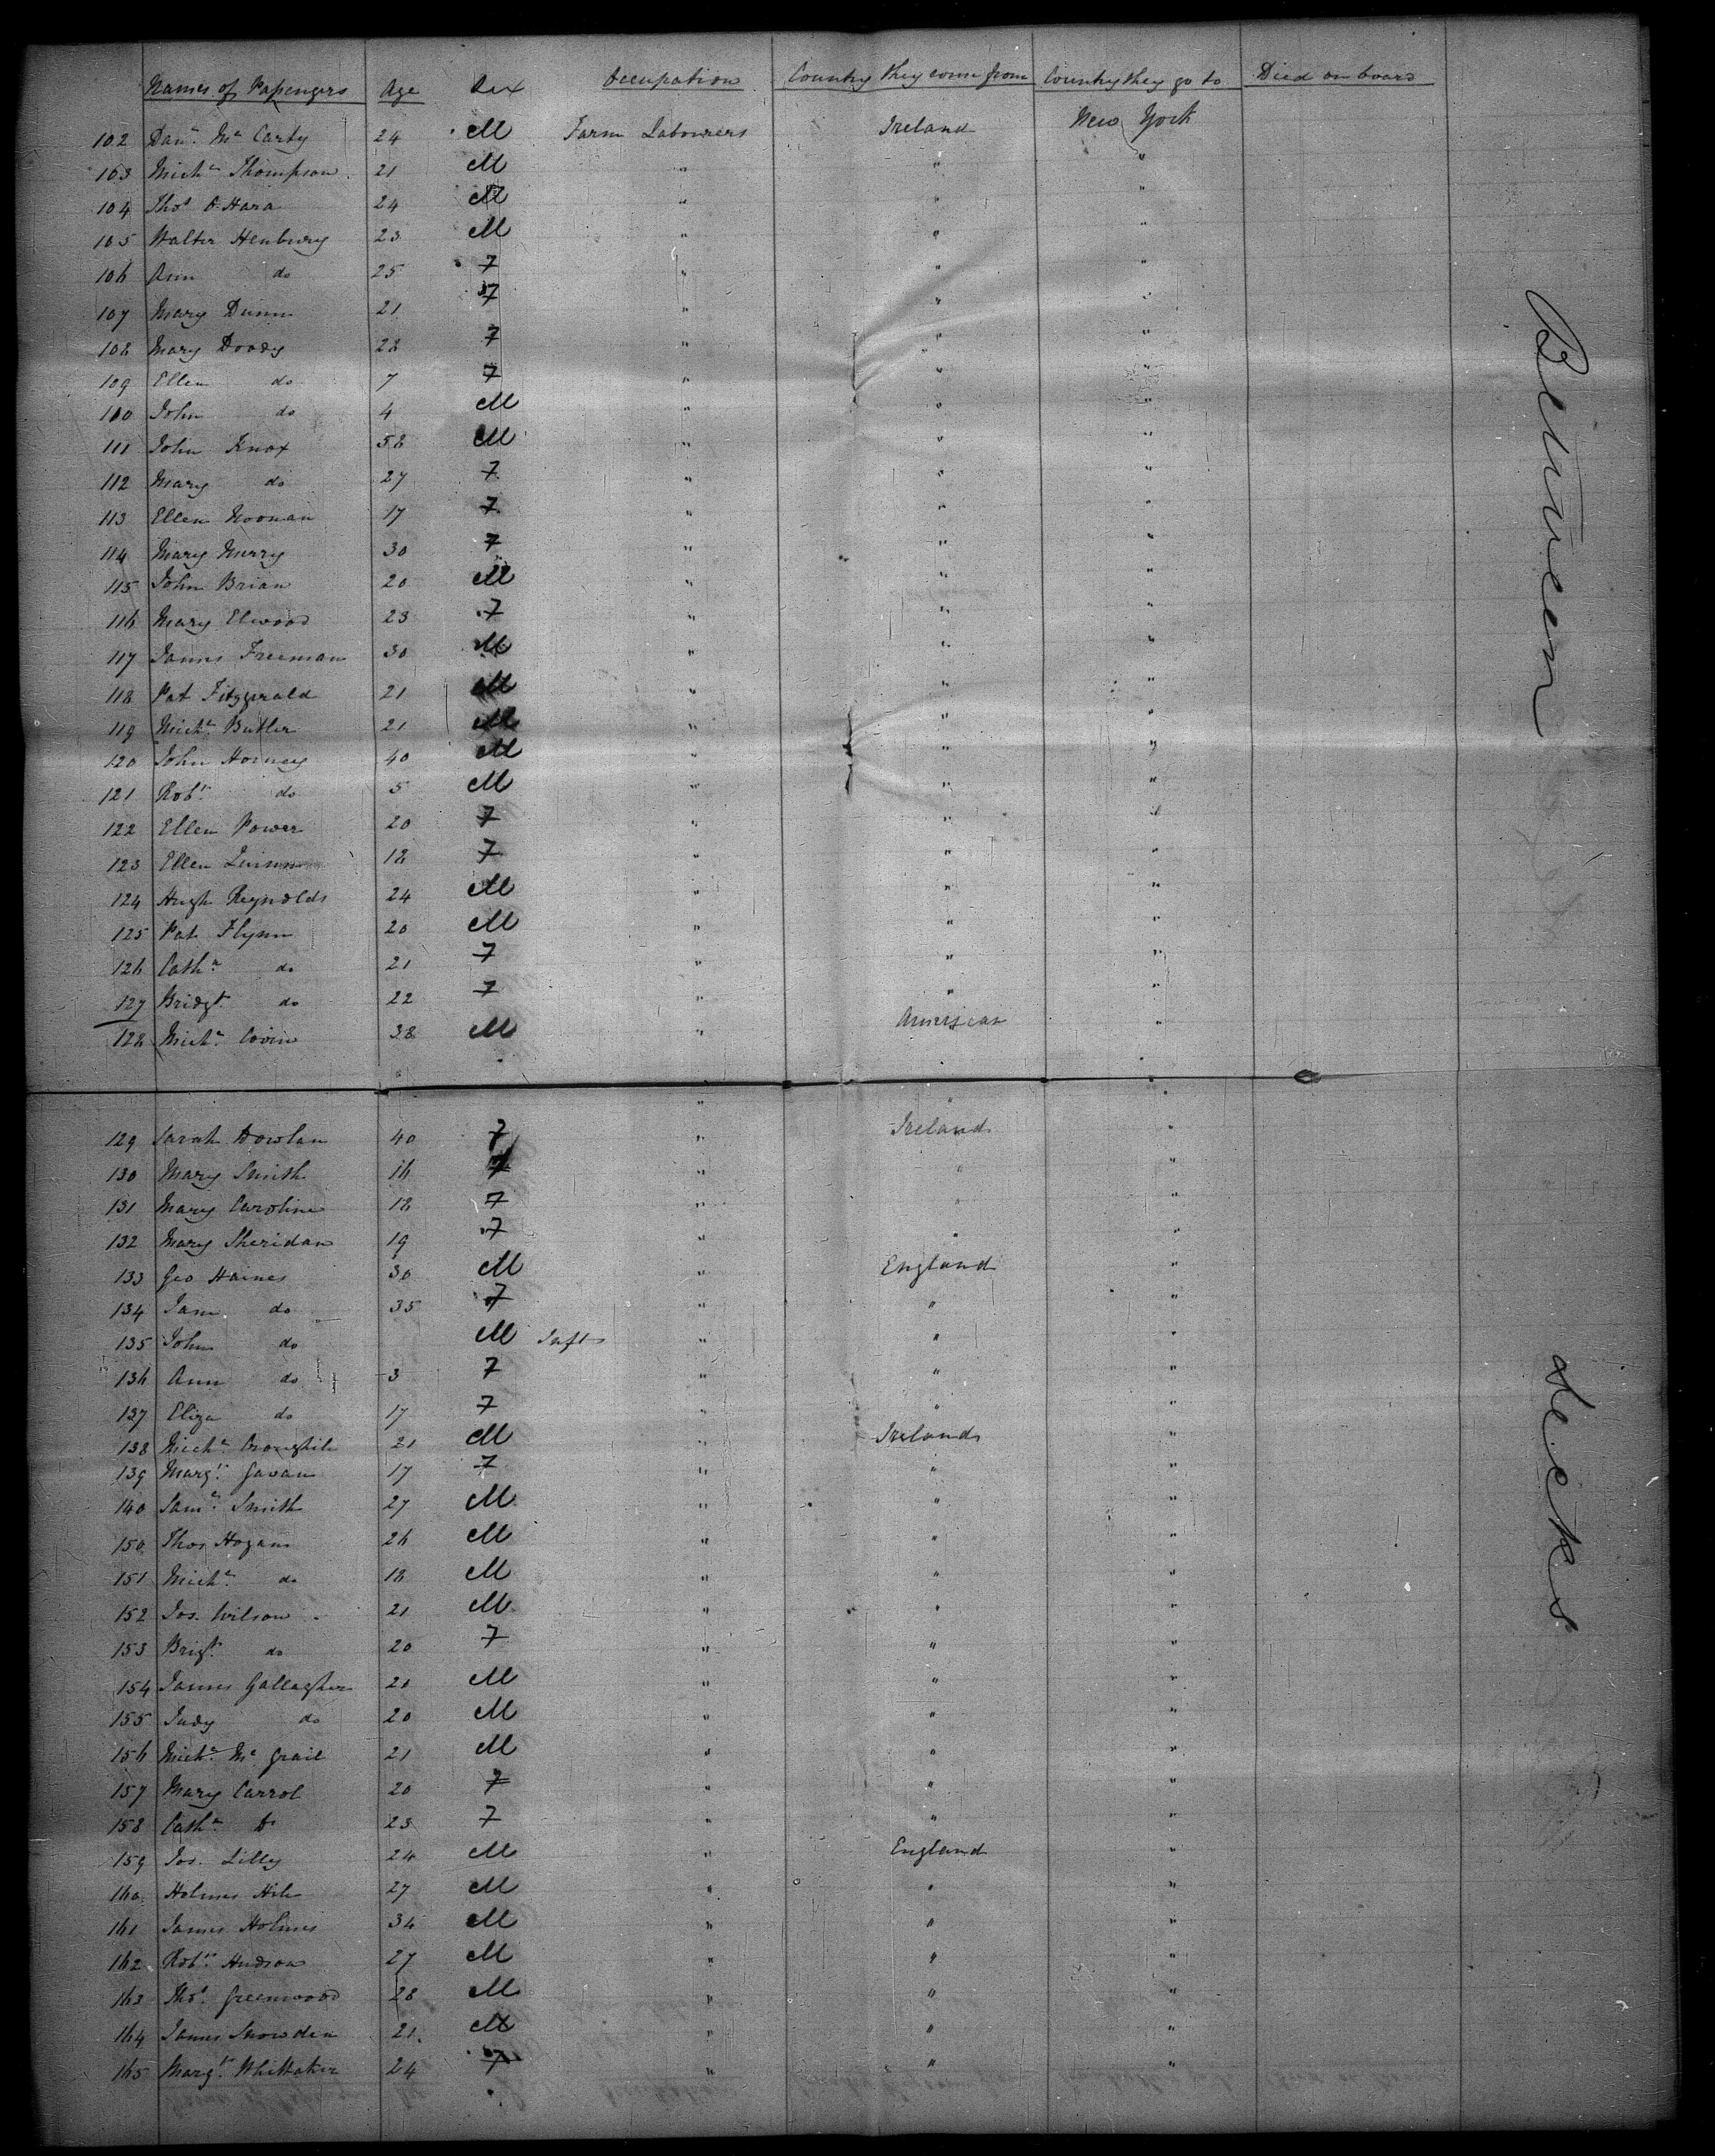 Names of Passengers Age Sex Occupation Country they come from Country they go to Died on board
102 Danl. Mc Carty 24 M Farm Labourers Ireland New York
103 Michl Thompson 21 M " " "
104 Thos O Hara 24 M " " "
105 Walter Henbury 23 M " " "
106 Ann do 25 F " " "
107 Mary Dunn 21 F " " "
108 Mary Doody 28 F " " "
109 Ellen do 7 F " " "
110 John do 4 M " " "
111 John Knox 58 M " " "
112 Mary do 27 F " " "
113 Ellen Noonan 17 F " " "
114 Mary Merry 30 F " " "
115 John Brian 20 M " " "
116 Mary Elwood 23 F " " "
117 James Freeman 30 M " " "
118 Pat Fitzgerald 21 M " " "
119 Michl. Butler 21 M " " "
120 John 40 M " " "
121 Robt. do 5 M " " "
122 Ellen Power 20 F " " "
123 Ellen Quinn 18 F " " "
124 Hugh Reynolds 24 M " " "
125 Pat Flynn 20 M " " "
126 Cathn do 21 F " " "
127 Bridgt do 22 F " " "
128 Michl. 38 M " American "
129 Sarah Dowlan 40 F " Ireland "
130 Mary Smith 16 F " " "
131 Mary Caroline 18 F " " "
132 Mary Sheridan 19 F " " "
133 Geo Haines 30 M " England "
134 Jane do 35 F " " "
135 John do M Inft " " "
136 Ann do 3 F " " "
137 Eliza do 17 F " " "
138 Michl 21 M " Ireland "
139 Margt. Gavan 17 F " " "
140 Saml. Smith 27 M " " "
150 Thos Hogan 26 M " " "
151 Michl. do 18 M " " "
152 Jos. Wilson 21 M " " "
153 Brigt. do 20 F " " "
154 James Gallagher 21 M " " "
155 Judy do 20 M " " "
156 Michl. Mc Grail 21 M " " "
157 Mary Carrol 20 F " " "
158 Cathn Do 23 F " " "
159 Jos. Lilly 24 M " England "
160 Holmes Hile 27 M " " "
161 James Holmes 34 M " " "
162 Robt. Hudson 27 M " " "
163 Thos. Greenwood 28 M " " "
164 James Snowden 21 M " " "
165 Margt. Whittaker 24 F " " "
Between decks